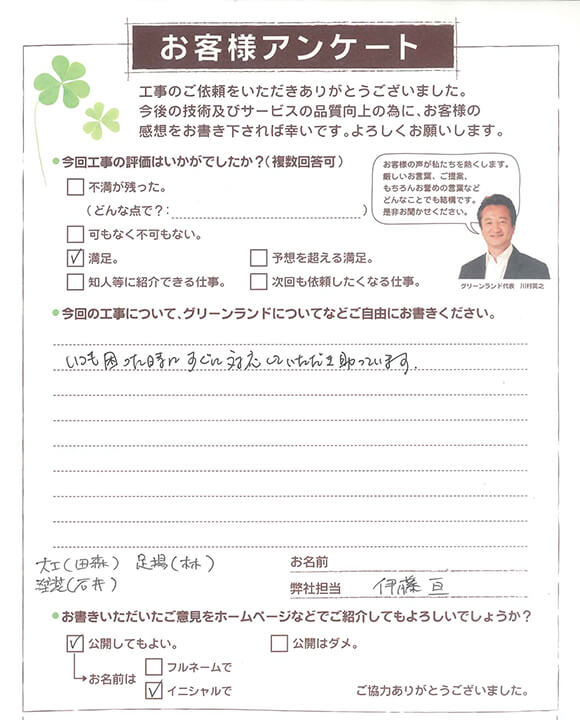 お客様アンケート
工事のご依頼をいただきありがとうございました。
今後の技術及びサービスの品質向上の為に、お客様の
感想をお書き下されば幸いです。よろしくお願いします。
●今回工事の評価はいかがでしたか?(複数回答可)
お客様の声が私たちを熱くします。
厳しいお言葉、ご提案、
もちろんお誉めの言葉など
どんなことでも結構です。
是非お聞かせください。
グリーンランド代表 川村真之
□不満が残った。
(どんな点で?: )
□可もなく不可もない。
☑満足。 □予想を超える満足。
□知人等に紹介できる仕事。 □次回も依頼したくなる仕事。
●今回の工事について、グリーンランドについてなどご自由にお書きください。
いつも困った時にすぐに対応していただき助っています。
大工(田森) 足場(林)
塗装(石井)
お名前
弊社担当 伊藤 亘
●お書きいただいたご意見をホームページなどでご紹介してもよろしいでしょうか?
☑公開してもよい。 □公開はダメ。
お名前は □フルネームで
☑イニシャルで
ご協力ありがとうございました。